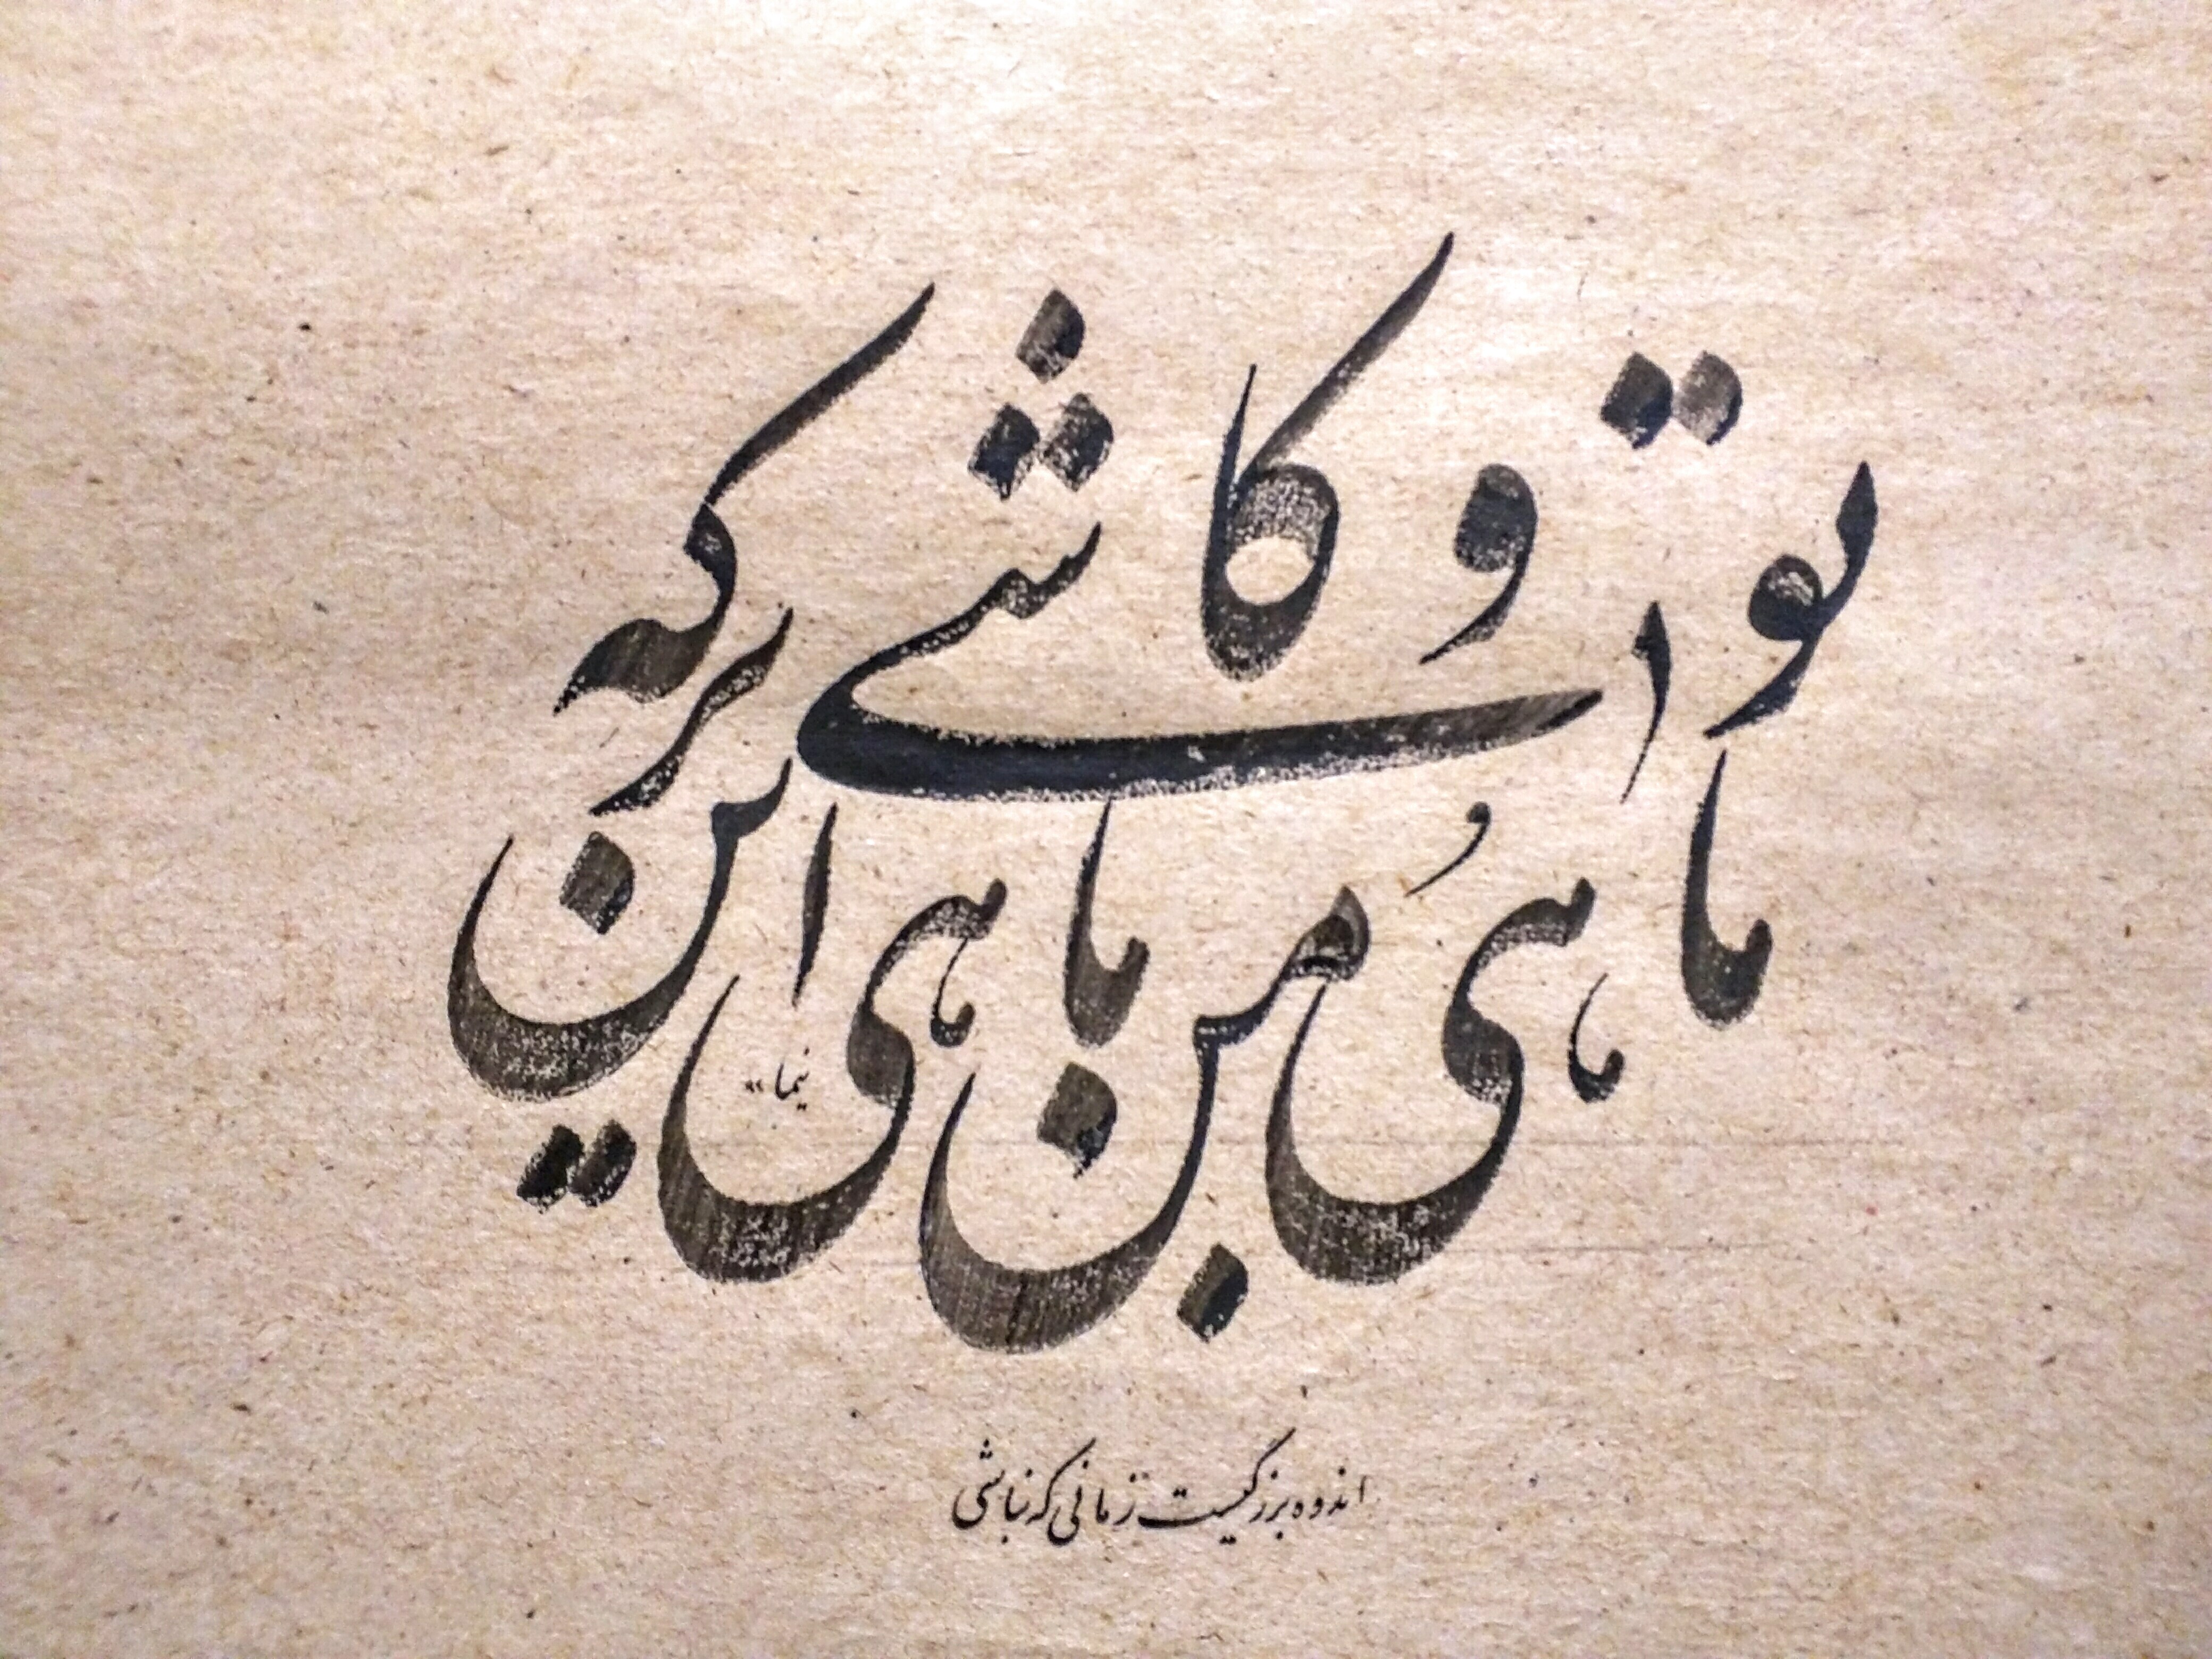 تو ماهی و من ماهی این برکه کاشی
نیما ۹۹
اندوه بزرگیست زمانی که نباشی